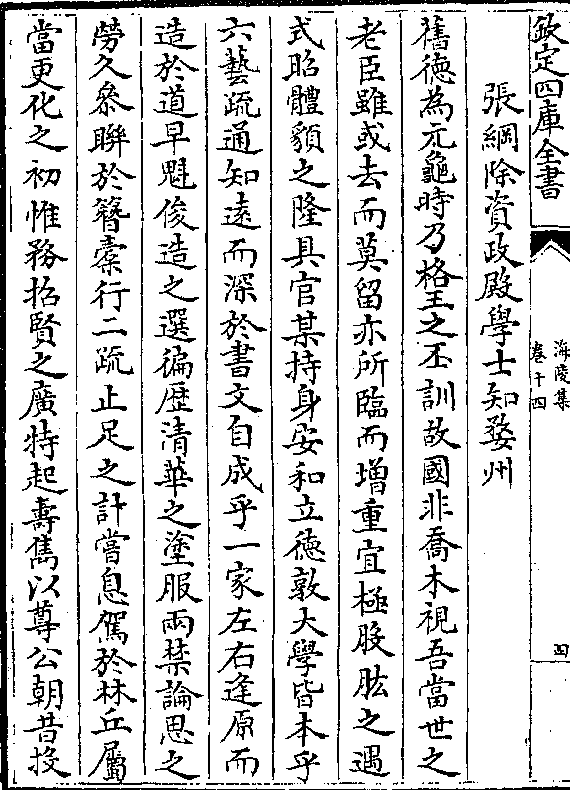 欽定四庫全書
海陵集
卷十四
四
張綱除資政殿學士知婺州
舊德為元龜時乃格王之丕訓故國非喬木視吾當世之
老臣雖或去而莫留亦所臨而增重宜極股肱之遇
式昭體貌之隆具官某持身安和立德敦大學皆本乎
六藝疏通知逺而深於書文自成乎一家左右逢原而
造於道早魁俊造之選徧歴清華之塗服兩禁論思之
勞久參聯於簪橐行二疏止足之計嘗息駕於林丘屬
當更化之初惟務招賢之廣特起壽雋以尊公朝昔投